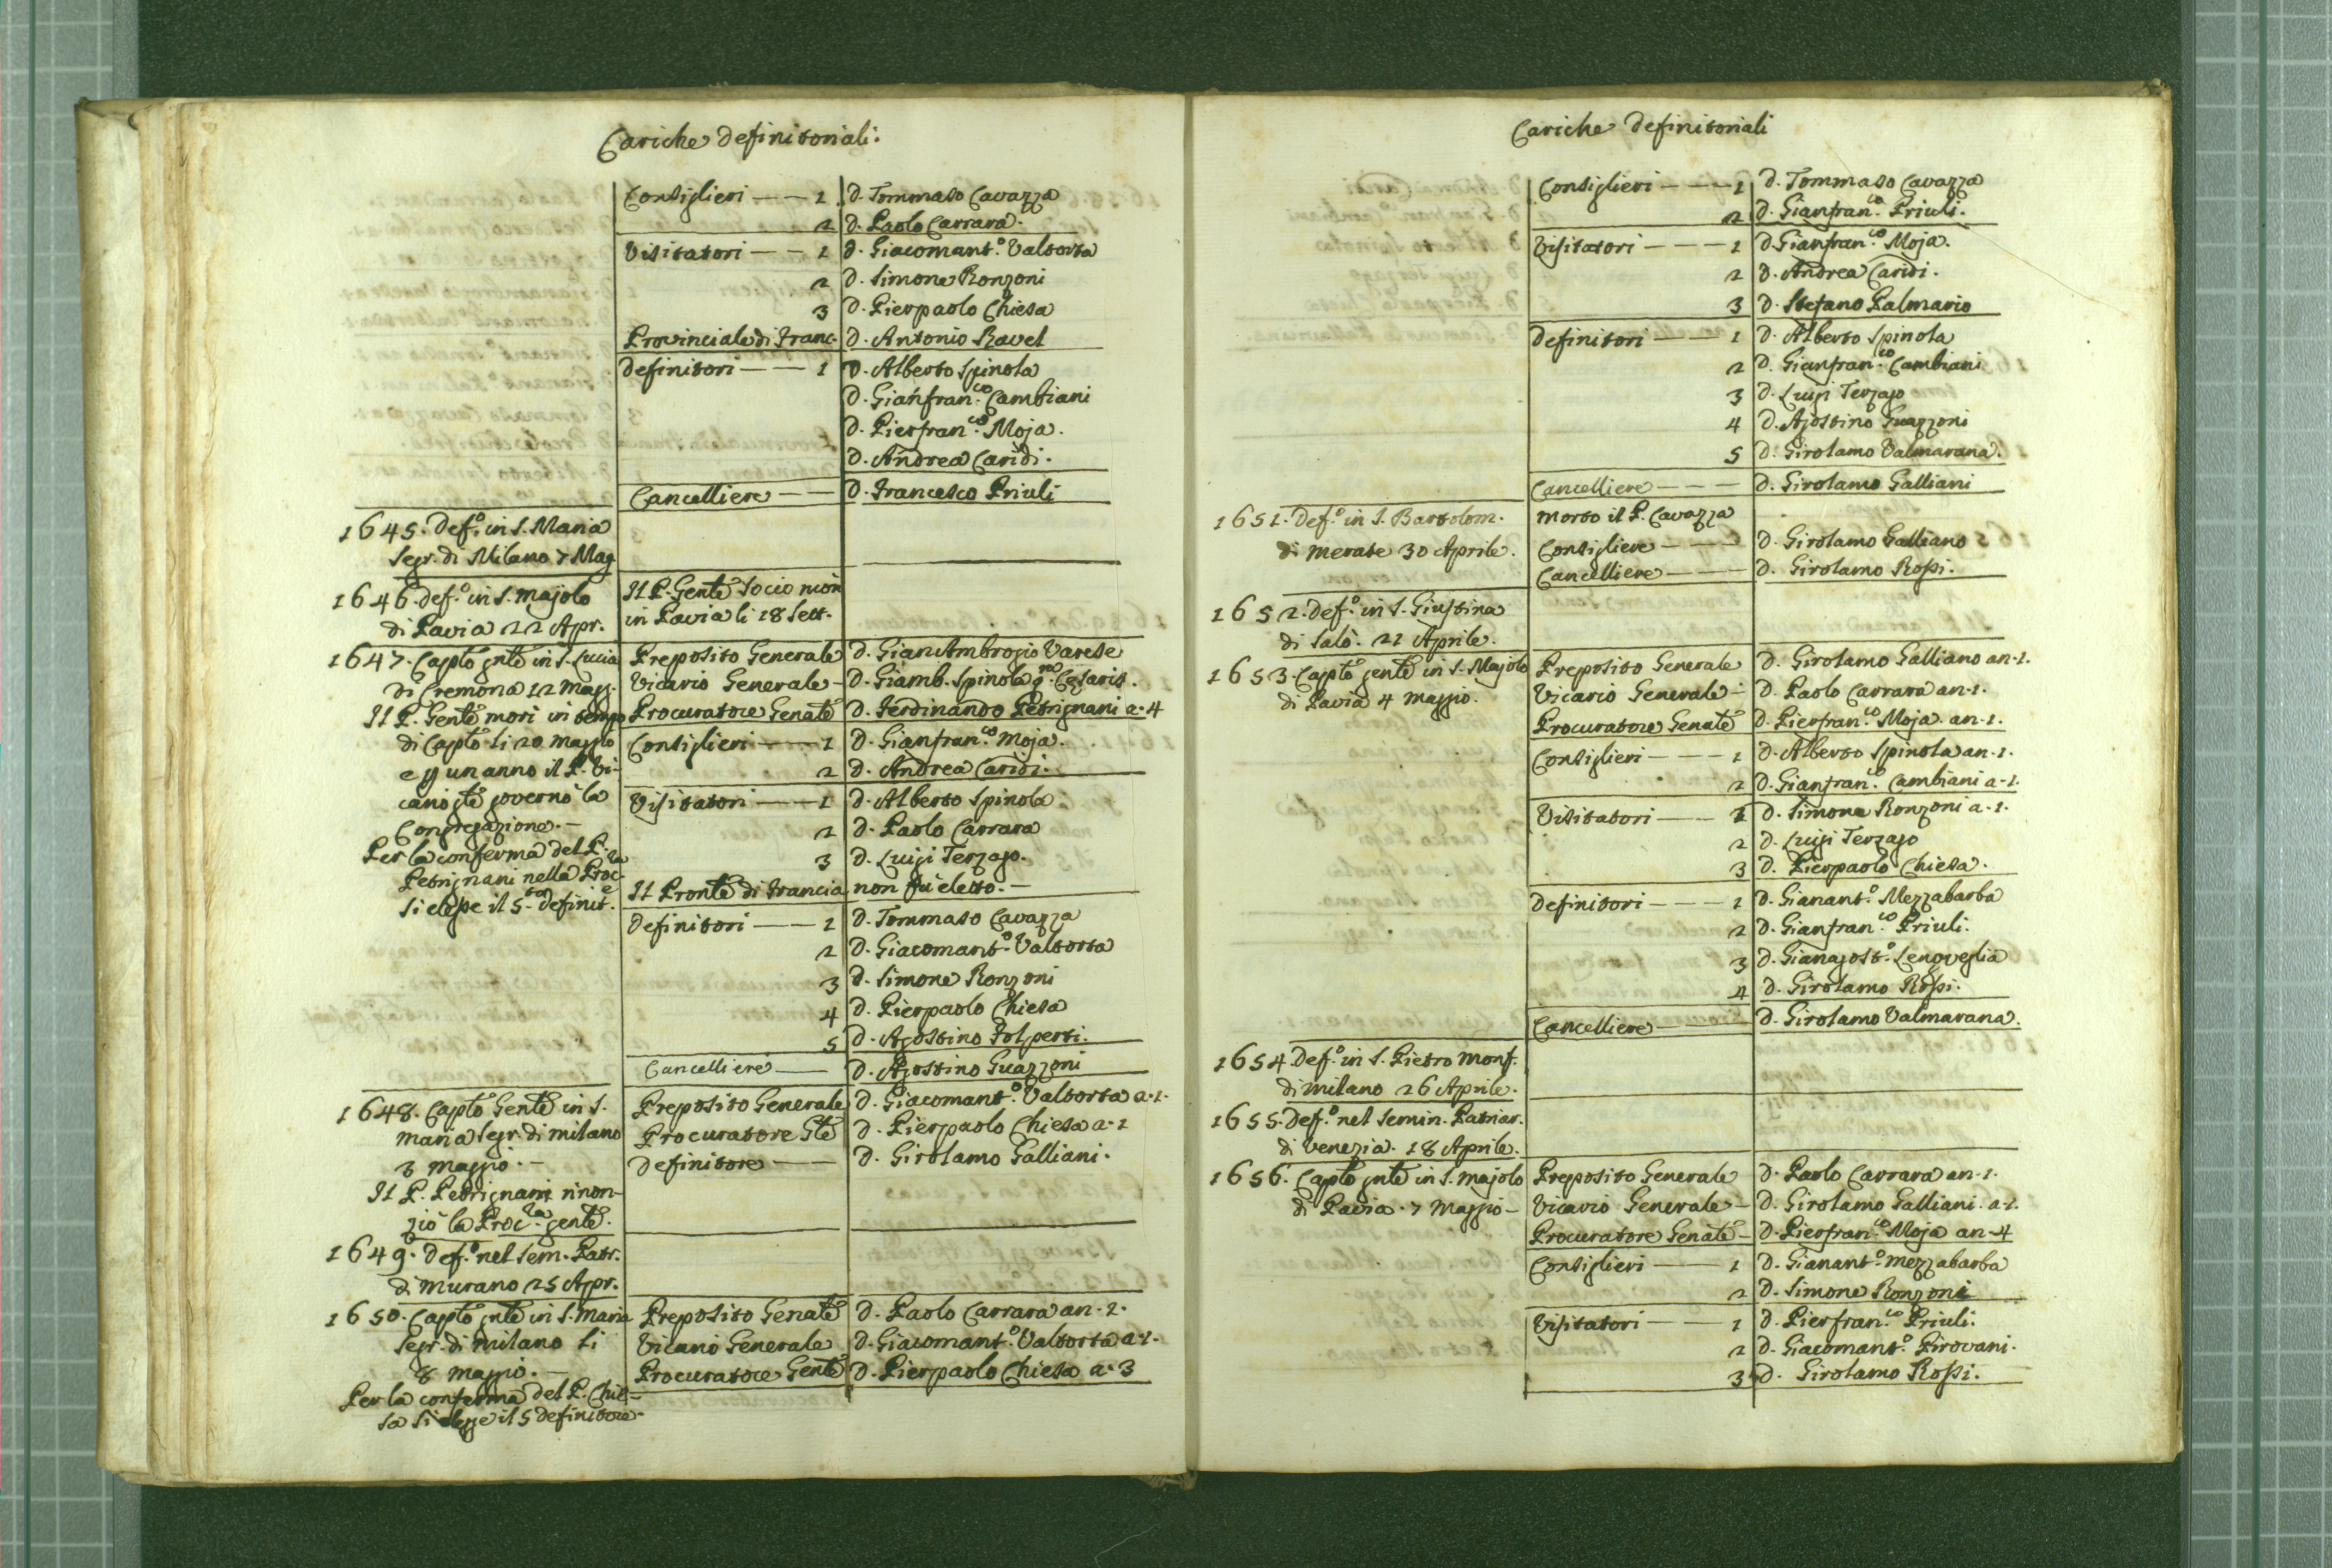 Cariche Definitoriali.
Consiglieri — — 1 D. Tommaso Cavazza
2 D. Paolo Carrara.
Visitatori — — 1 D. Giacomant.º Valtorta
2 D. Simone Ronzoni
3 D. Pierpaolo Chiesa
Provinciale di Franc. D. Antonio Ravel
Definitori — — 1 D. Alberto Spinola
D. Gianfran.co Cambiani
D. Pierfran.co Moja.
D. Andrea Caridi.
Cancelliere — — D. Francesco Priuli
1645. Def.º in S. Maria
Segr. di Milano 7 Mag
1646. Def.º in S. Majolo Il P. Gentê Socio morì
di Pavia 22 Apr. in Pavia li 18 Sett.
1647. Captô gntê in S. Lucia Preposito Generale D. GianAmbrogio Varese
di Cremona 12 Magg. Vicario Generale — D. Giamb. Spinola q.m Cesaris.
Il P. Gentê morì in tempo Procuratore Genatê D. Ferdinando Petrignani a. 4
di Captô li 20 Maggio Consiglieri — — 1 D. Gianfran.co Moja.
e p un anno il P. Vi- 2 D. Andrea Caridi.
cario gtê governò la Visitatori — — 1 D. Alberto Spinola
Congregazione. — 2 D. Paolo Carrara
Per la conferma del P. 3 D. Luigi Terzago.
Petrignani nella Proc.ra Il Prontê di Francia non fu eletto. —
si elesse il 5.to Definit.e
Definitori — — 1 D. Tommaso Cavazza
2 D. Giacomant.º Valtorta
3 D. Simone Ronzoni
4 D. Pierpaolo Chiesa
5 D. Agostino Folperti.
Cancelliere — D. Agostino Guazzoni
1648. Captô Gentê in S. Preposito Generale D. Giacomant.º Valtorta a. 1.
Maria Segr. di Milano Procuratore Gtê D. Pierpaolo Chiesa a. 1
3 Maggio. — Definitore — D. Girolamo Galliani.
Il P. Petrignani rinon-
ziò la Proc.ra gentê.
1649. Def.º nel Sem. Patr.
di Murano 25 Apr.
1650. Captô gntê in S. Maria Preposito Genatê D. Paolo Carrara an. 1.
Segr. di Milano li Vicario Generale D. Giacomant.º Valtorta a. 1.
8 Maggio. — Procuratore Gentê D. Pierpaolo Chiesa a. 3
Per la conferma del P. Chie-
sa si elesse il 5 Definitore.
Cariche Definitoriali
Consiglieri — — — 1 D. Tommaso Cavazza
2 D. Gianfran.co Priuli.
Visitatori — — — 1 D. Gianfran.co Moja.
2 D. Andrea Caridi.
3 D. Stefano Palmario
Definitori — — 1 D. Alberto Spinola
2 D. Gianfran.co Cambiani
3 D. Luigi Terzago
4 D. Agostino Guazzoni
5 D. Girolamo Valmarana.
Cancelliere — — — D. Girolamo Galliani
1651. Def.º in S. Bartolom. Morto il P. Cavazza
di Merate 30 Aprile. Consigliere — — — D. Girolamo Galliano
Cancelliere — — — D. Girolamo Rossi.
1652. Def.º in S. Giustina
di Salò. 21 Aprile.
1653. Captô gentê in S. Majolo Preposito Generale D. Girolamo Galliano an. 1.
di Pavia 4 Maggio. Vicario Generale — D. Paolo Carrara an. 1.
Procuratore Genatê D. Pierfran.co Moja. an. 1.
Consiglieri — — — 1 D. Alberto Spinola an. 1.
2 D. Gianfran.co Cambiani a. 1.
Visitatori — — 1 D. Simone Ronzoni a. 1.
2 D. Luigi Terzago
3 D. Pierpaolo Chiesa.
Definitori — — — 1 D. Gianant.º Mezzabarba
2 D. Gianfran.co Priuli.
3 D. Gianagost.º Lengveglia
4 D. Girolamo Rossi.
Cancelliere — — D. Girolamo Valmarana.
1654. Def.º in S. Pietro Monf.
di Milano 26 Aprile.
1655. Def.º nel Semin. Patriar.
di Venezia. 18 Aprile.
1656. Captô gntê in S. Majolo Preposito Generale D. Paolo Carrara an. 1.
di Pavia. 7 Maggio — Vicario Generale — D. Girolamo Galliani. a. 1.
Procuratore Genatê — D. Pierfran.co Moja an. 4
Consiglieri — — 1 D. Gianant.º Mezzabarba
2 D. Simone Ronzoni
Visitatori — — 1 D. Pierfran.co Priuli.
2 D. Giacomant.º Pirovani.
3 D. Girolamo Rossi.